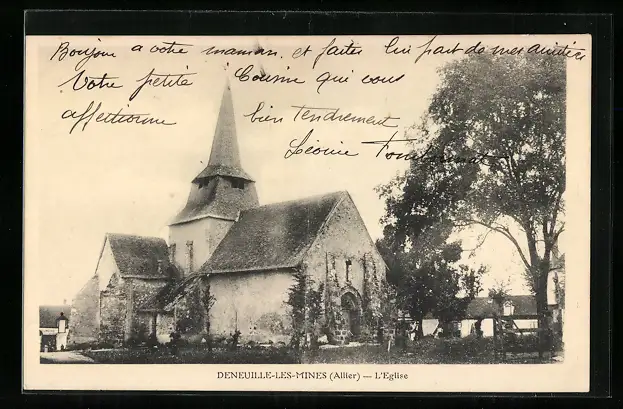 Bonjour a votre maman et faites lui part de mes amitiés
Votre petite Cousine qui vous
affectionne bien tendrement
Léonie
DENEUILLE-LES-MINES (Allier) — L'Eglise